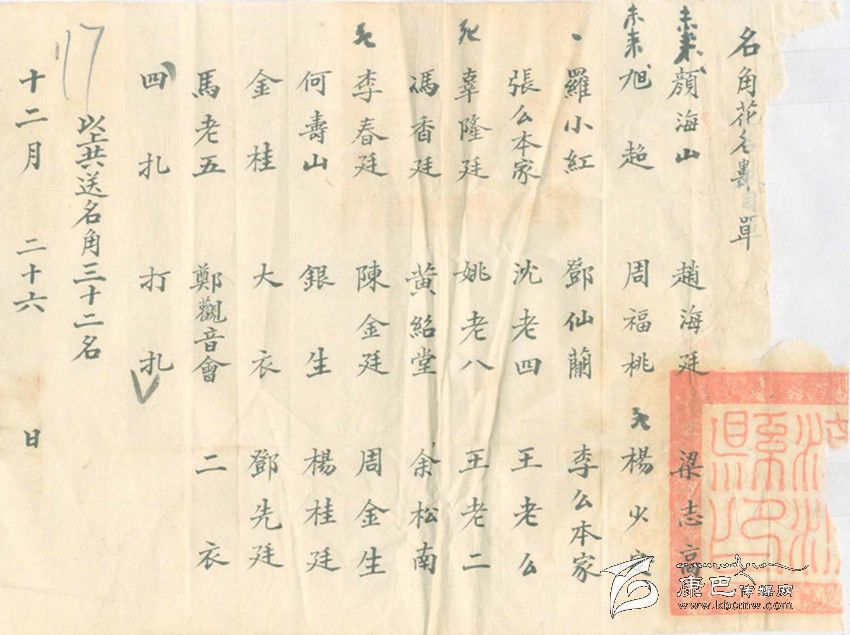 名角花名數目單
未來 顏海山 趙海廷 梁志高
未來 旭超 周福桃 死 楊少
羅小紅 鄧仙蘭 李公本家
張公本家 沈老四 王老么
死 辜隆廷 姚老八 王老二
馮香廷 黃紹堂 余松南
死 李春廷 陳金廷 周金生
何壽山 銀生 楊桂廷
金桂 大衣 鄧先廷
馬老五 鄭觀音會 二衣
四扎 打扎
以上共送名角三十二名
十二月 二十六 日
縣印
康巴传媒网
www.kbcmw.com